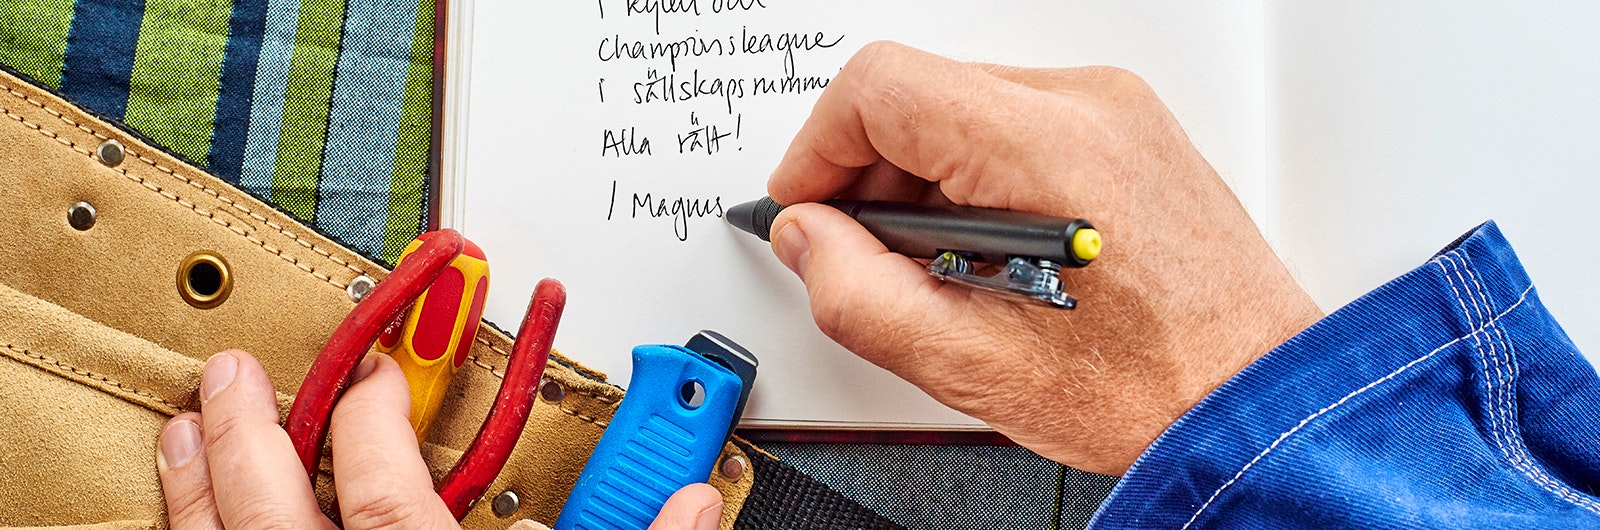 i kylen och
Championsleague
i sällskapsrumme
Alla rätt!
/ Magnus